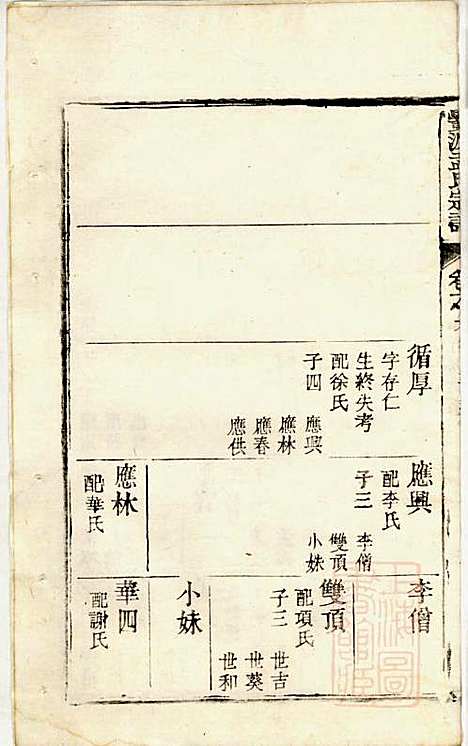 氏宗譜
卷
循厚
字存仁
生終失考
配徐氏
子四
應興
應林
應春
應供
應興
配李氏
子三
李僧
雙頂
小妹
應林
配華氏
李僧
雙頂
配項氏
子三
世吉
世葵
世和
小妹
華四
配謝氏
上海圖